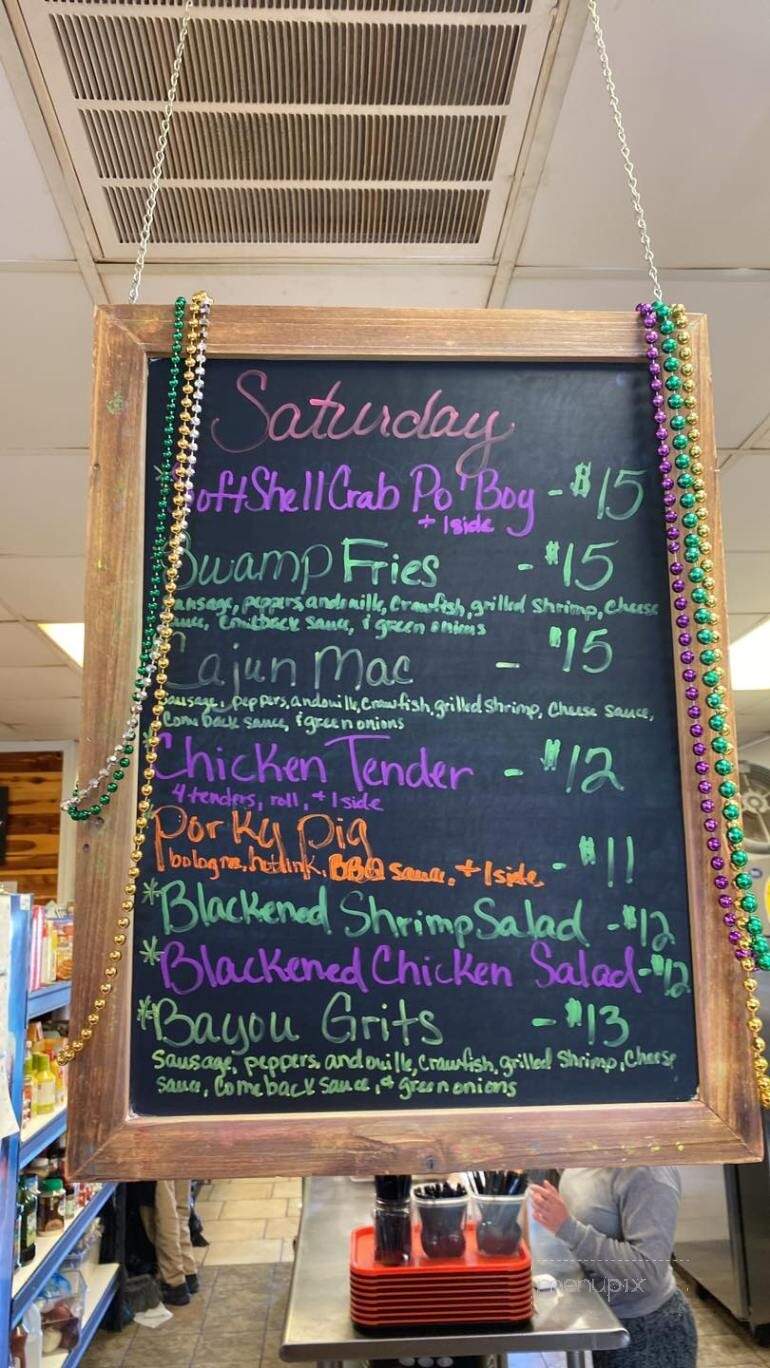 Saturday
Soft Shell Crab Po' Boy - $15
+ 1 side
Swamp Fries - $15
sausage, peppers, andouille, crawfish, grilled shrimp, cheese
sauce, comeback sauce, & green onions
Cajun Mac - $15
sausage, peppers, andouille, crawfish, grilled shrimp, cheese sauce,
come back sauce, & green onions
Chicken Tender - $12
4 tenders, roll, + 1 side
Porky Pig - $11
bologna, hotlink, BBQ sauce, + 1 side
*Blackened Shrimp Salad - $12
*Blackened Chicken Salad - $12
*Bayou Grits - $13
sausage, peppers, andouille, crawfish, grilled shrimp, cheese
sauce, comeback sauce, & green onions
menupix